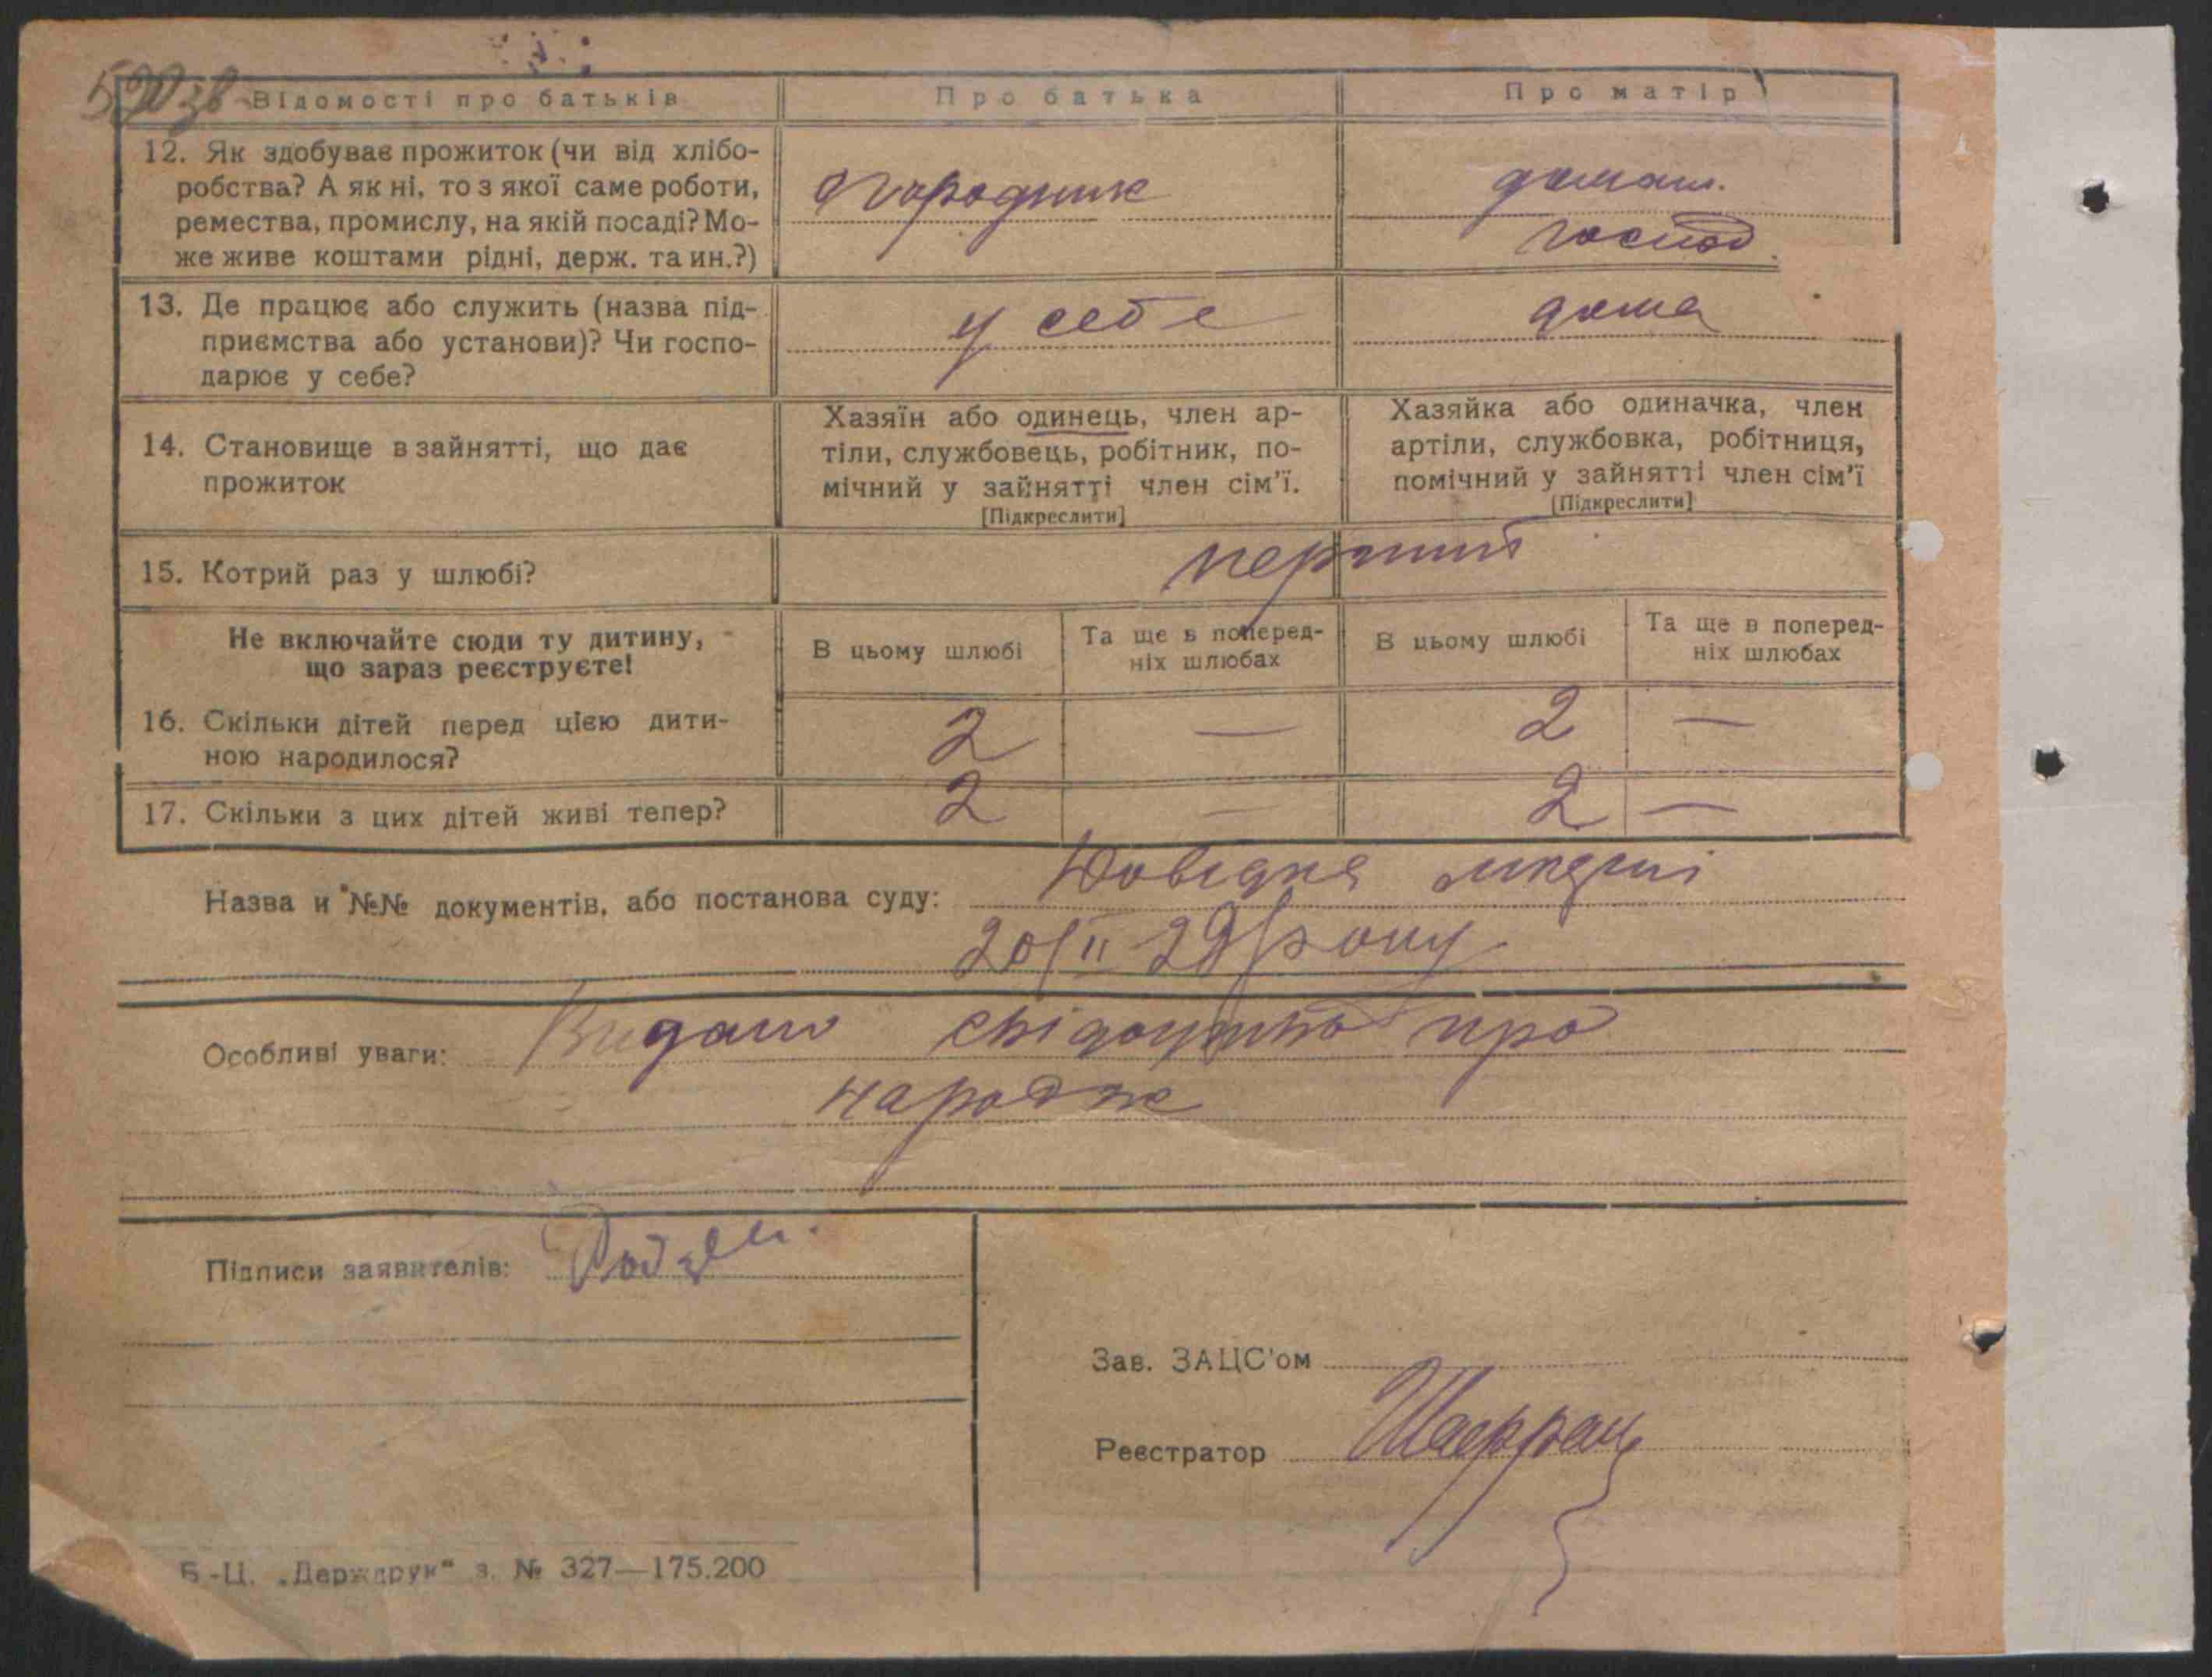 590зв
Відомості про батьків
Про батька
Про матір
12. Як здобуває прожиток (чи від хлібо-
робства? А як ні, то з якої саме роботи,
ремества, промислу, на якій посаді? Мо-
же живе коштами рідні, держ. та ин.?)
огородник
домаш.
господ.
13. Де працює або служить (назва під-
приємства або установи)? Чи госпо-
дарює у себе?
у себе
дома
14. Становище в зайнятті, що дає
прожиток
Хазяїн або одинець, член ар-
тіли, службовець, робітник, по-
мічний у зайнятті член сім'ї.
[Підкреслити]
Хазяйка або одиначка, член
артіли, службовка, робітниця,
помічний у зайнятті член сім'ї
[Підкреслити]
15. Котрий раз у шлюбі?
перший
Не включайте сюди ту дитину,
що зараз реєструєте!
В цьому шлюбі
Та ще в поперед-
ніх шлюбах
В цьому шлюбі
Та ще в поперед-
ніх шлюбах
16. Скільки дітей перед цією дити-
ною народилося?
2 — 2 —
17. Скільки з цих дітей живі тепер?
2 — 2 —
Назва и №№ документів, або постанова суду: Довідка
20/II 29 року
Особливі уваги: Видано свідоцтво про
народж
Підписи заявителів:
Зав. ЗАЦС'ом
Реєстратор
Б-Ц. „Держдрук“ з. № 327—175.200